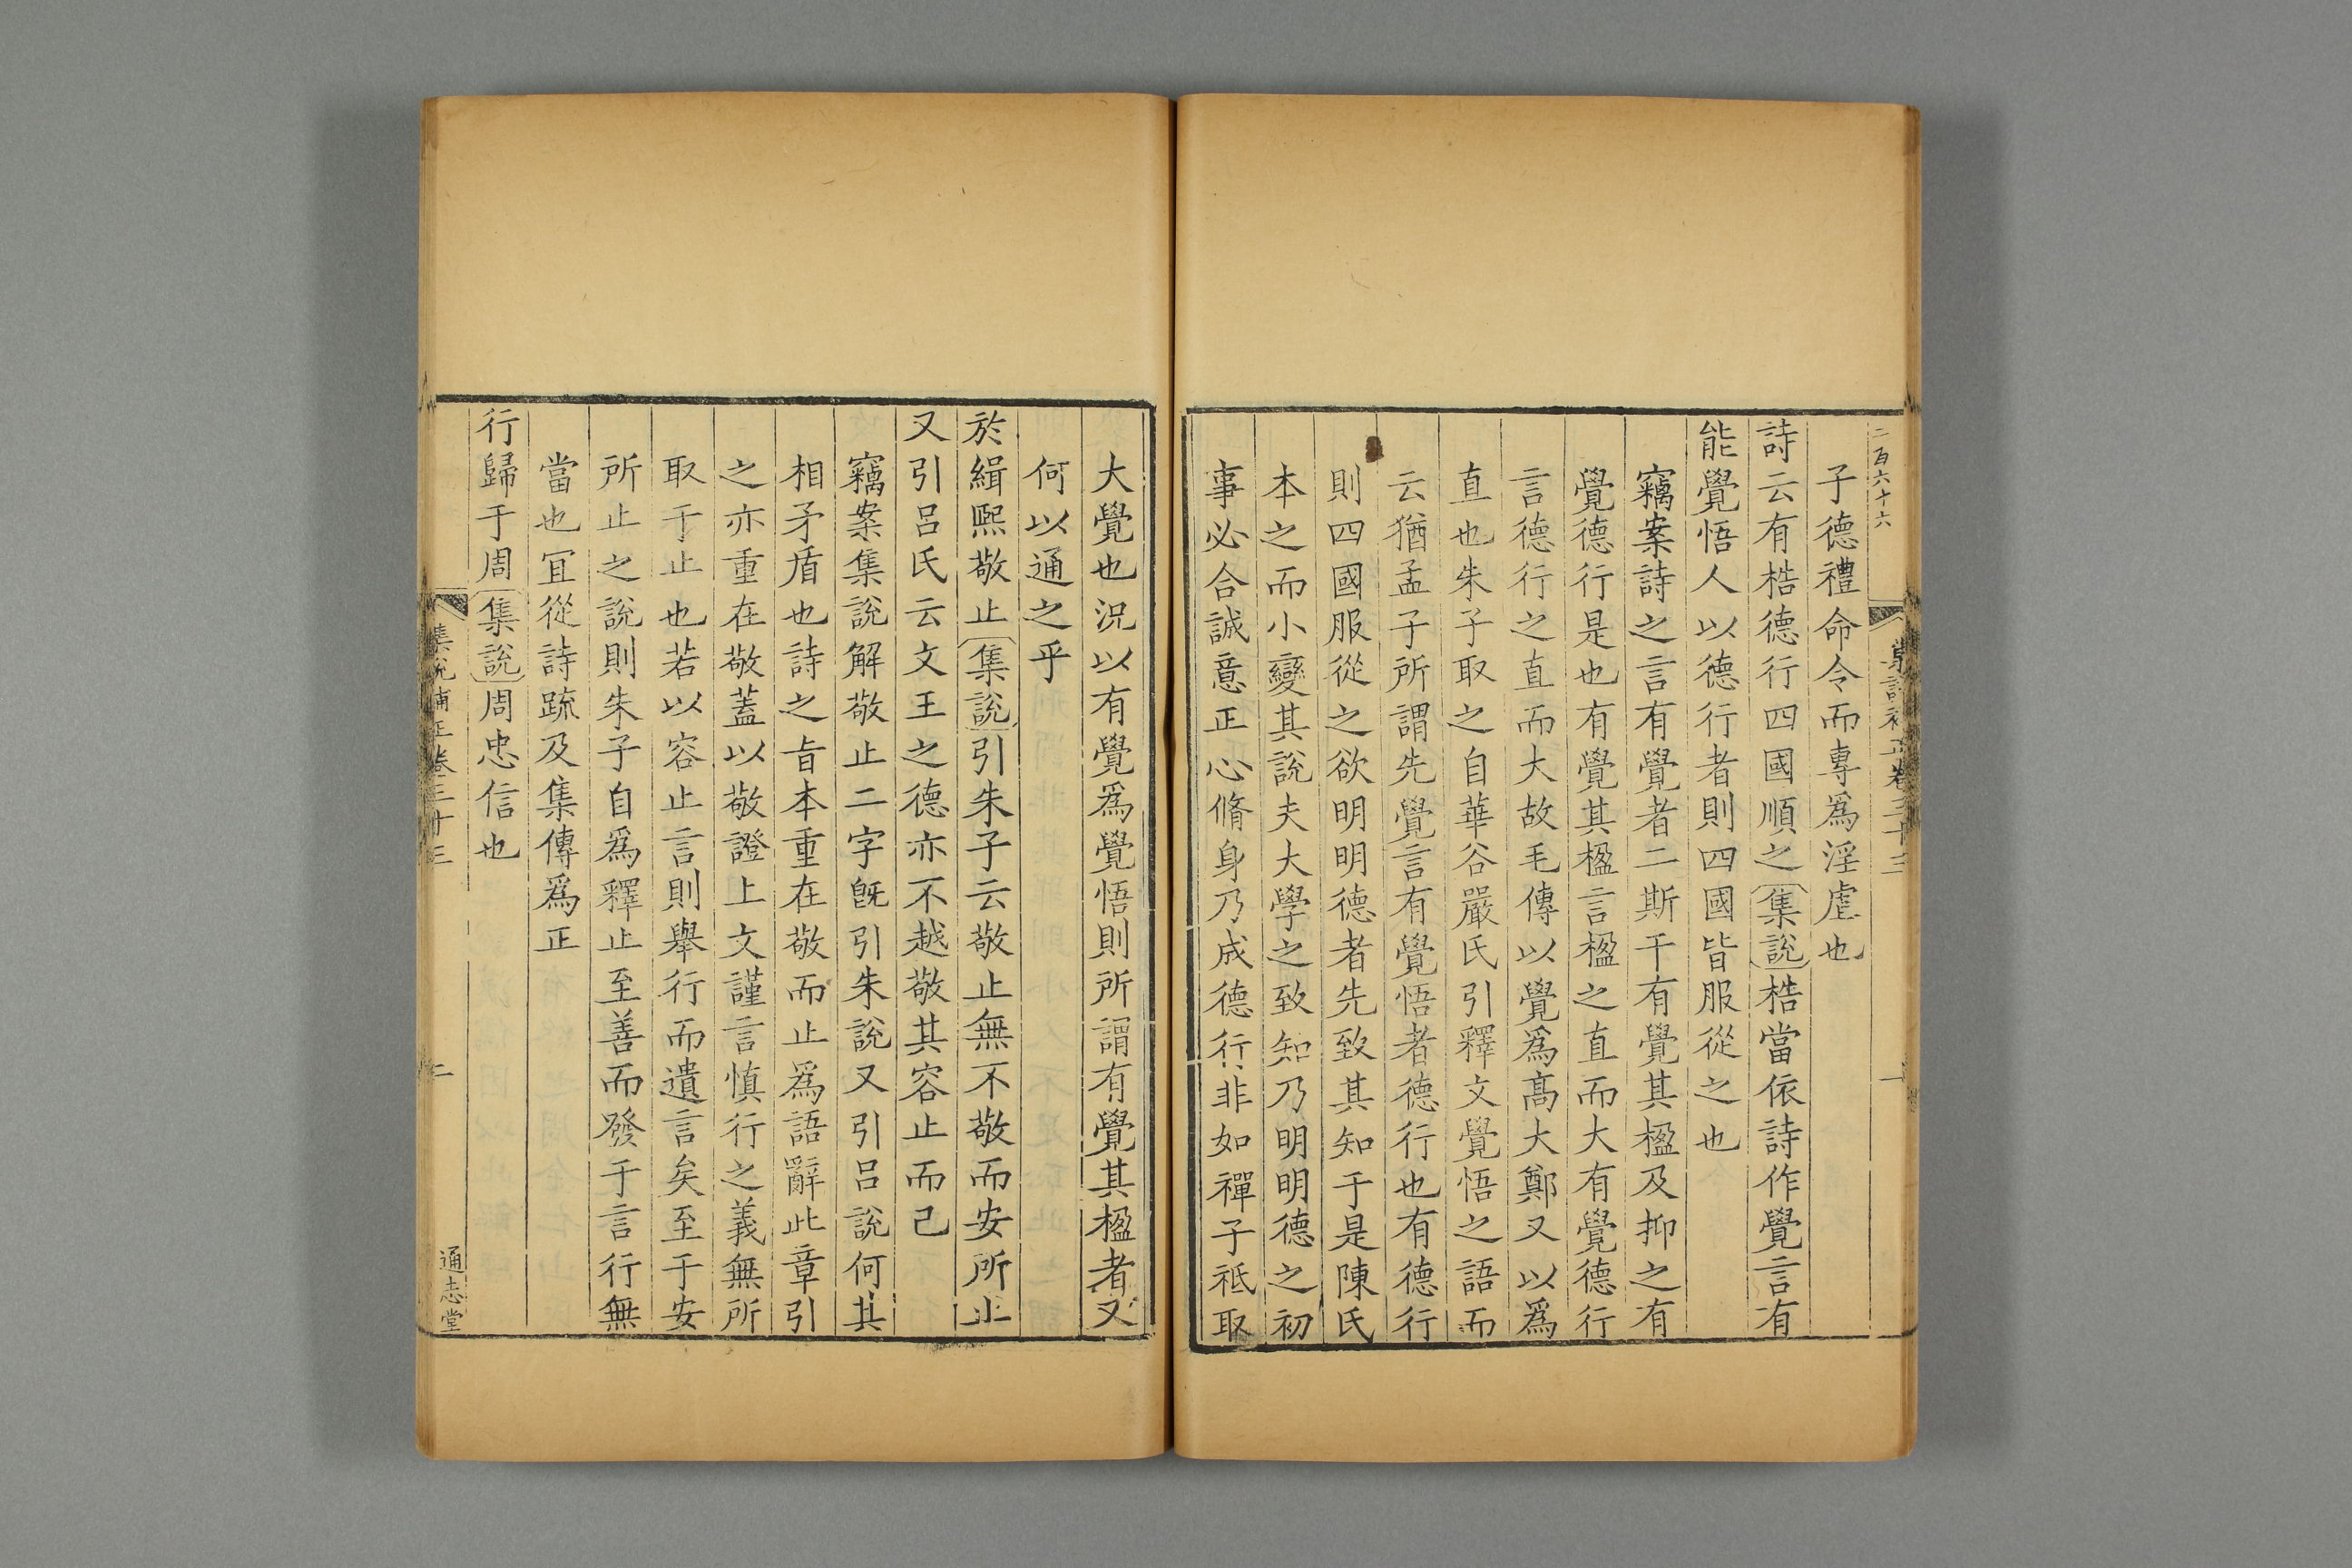 二百六十六
集說補正卷三十三
一
子德禮命令而專爲淫虐也
詩云有梏德行四國順之集說梏當依詩作覺言有
能覺悟人以德行者則四國皆服從之也
竊案詩之言有覺者二斯干有覺其楹及抑之有
覺德行是也有覺其楹言楹之直而大有覺德行
言德行之直而大故毛傳以覺爲高大鄭又以爲
直也朱子取之自華谷嚴氏引釋文覺悟之語而
云猶孟子所謂先覺言有覺悟者德行也有德行
則四國服從之欲明明德者先致其知于是陳氏
本之而小變其說夫大學之致知乃明明德之初
事必合誠意正心脩身乃成德行非如禪子祗取
大覺也況以有覺爲覺悟則所謂有覺其楹者又
何以通之乎
於緝熙敬止集說引朱子云敬止無不敬而安所止
又引呂氏云文王之德亦不越敬其容止而已
竊案集說解敬止二字旣引朱說又引呂說何其
相矛盾也詩之旨本重在敬而止爲語辭此章引
之亦重在敬蓋以敬證上文謹言慎行之義無所
取于止也若以容止言則舉行而遺言矣至于安
所止之說則朱子自爲釋止至善而發于言行無
當也冝從詩疏及集傳爲正
行歸于周集說周忠信也
集說補正卷三十三
二
通志堂